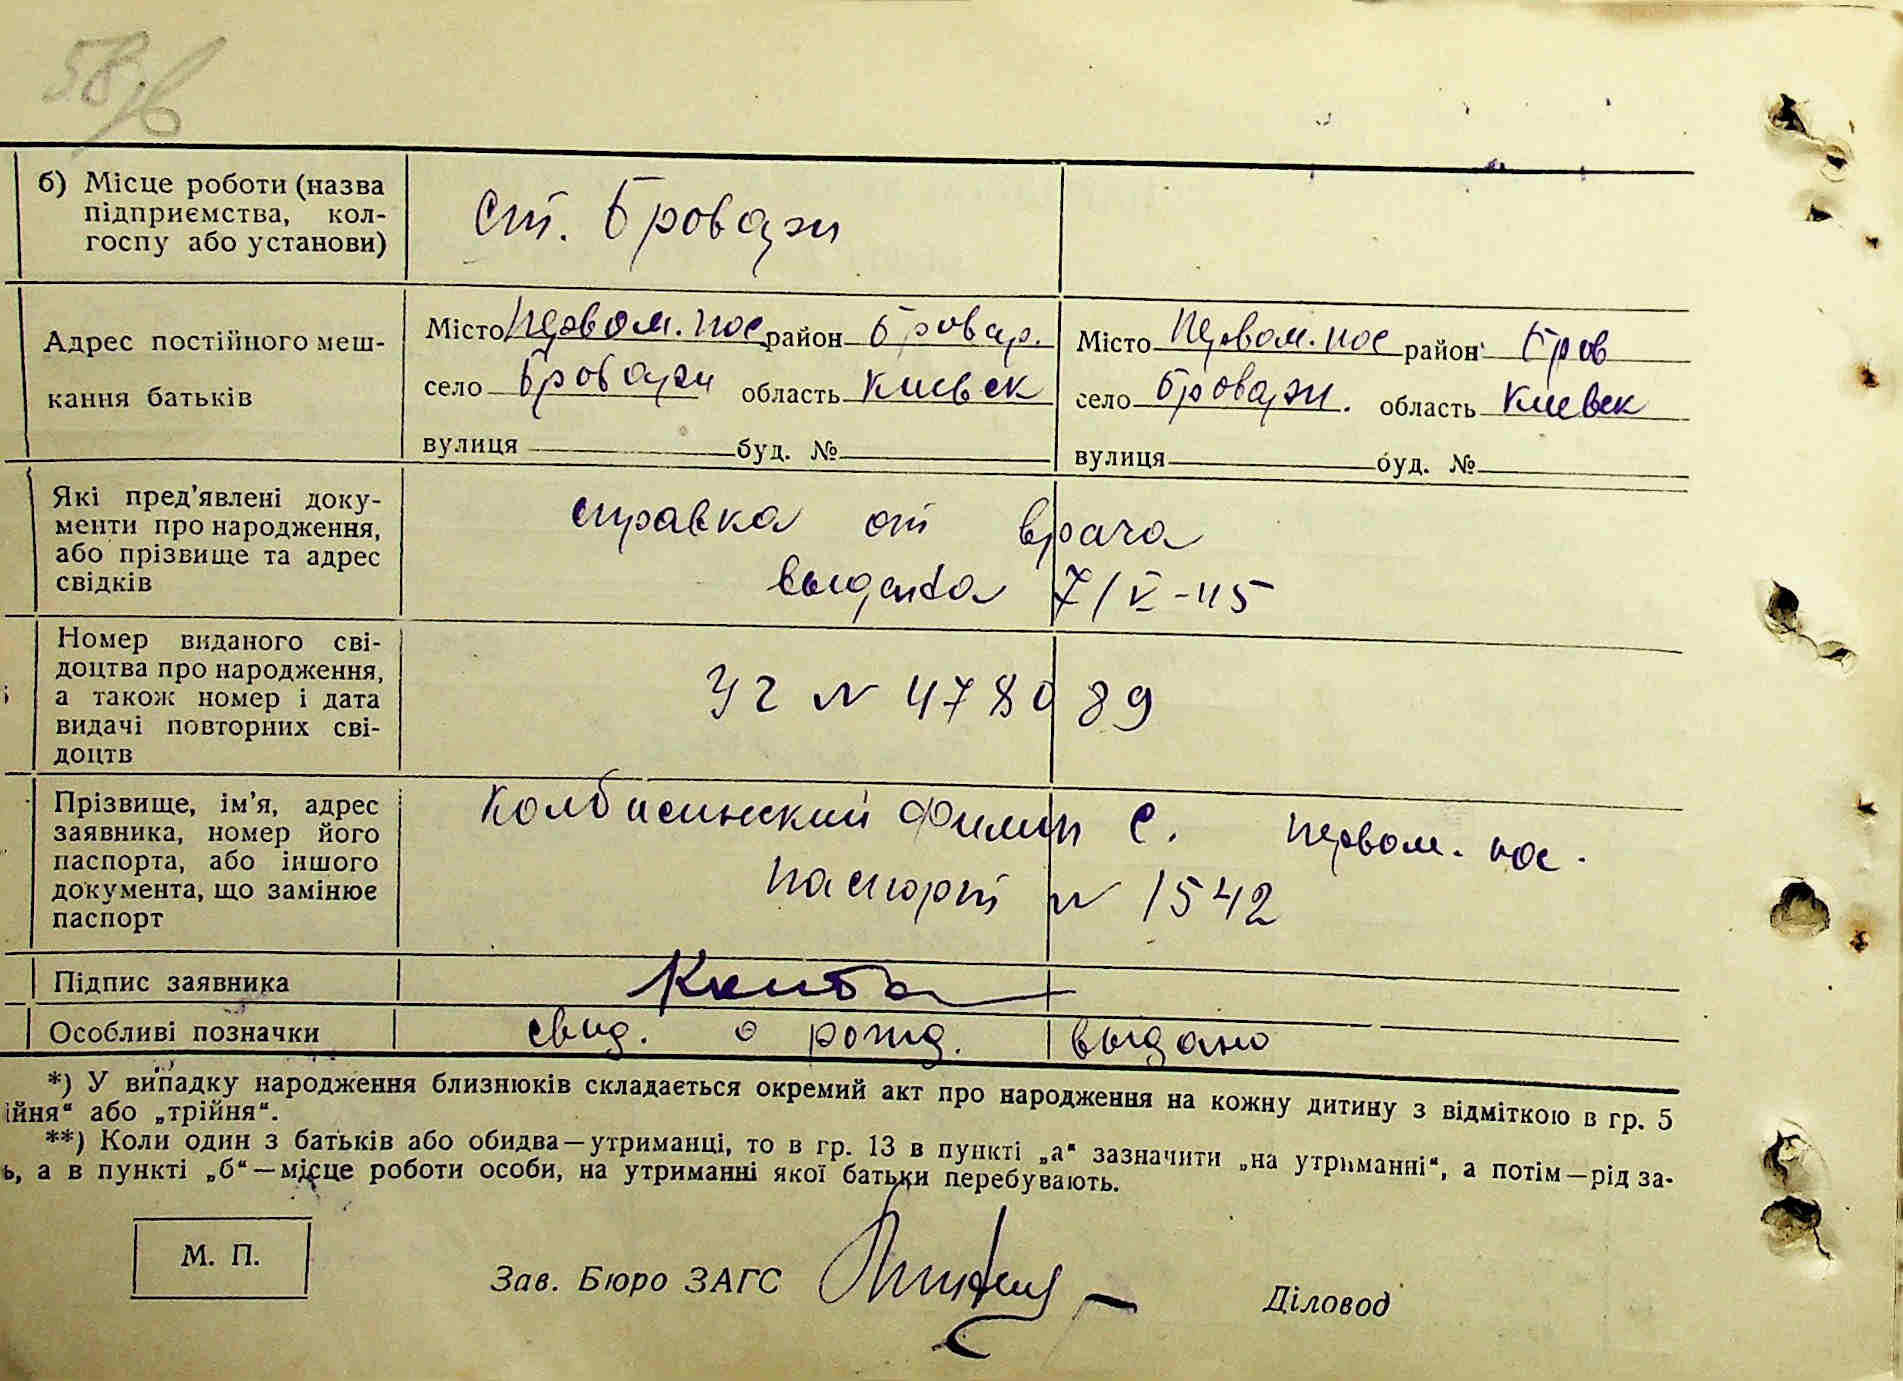 58 об
б) Місце роботи (назва
підприємства, кол-
госпу або установи)
ст. Бровари
Адрес постійного меш-
кання батьків
Місто Первом. пос район Бровар.
село Бровари область Киевск
вулиця буд. №
Місто Первом. пос район Бров
село Бровари. область Киевск
вулиця буд. №
Які пред’явлені доку-
менти про народження,
або прізвище та адрес
свідків
справка от врача
выдана 7/V-45
Номер виданого сві-
доцтва про народження,
а також номер і дата
видачі повторних сві-
доцтв
УЧ N 478089
Прізвище, ім’я, адрес
заявника, номер його
паспорта, або іншого
документа, що замінює
паспорт
Колбасинский Филип С. Первом. пос.
паспорт N 1542
Підпис заявника
Особливі позначки
свид. о рожд. выдано
*) У випадку народження близнюків складається окремий акт про народження на кожну дитину з відміткою в гр. 5
ійня“ або „трійня“.
**) Коли один з батьків або обидва—утриманці, то в гр. 13 в пункті „а“ зазначити „на утриманні“, а потім—рід за-
ь, а в пункті „б“—місце роботи особи, на утриманні якої батьки перебувають.
М. П.
Зав. Бюро ЗАГС
Діловод